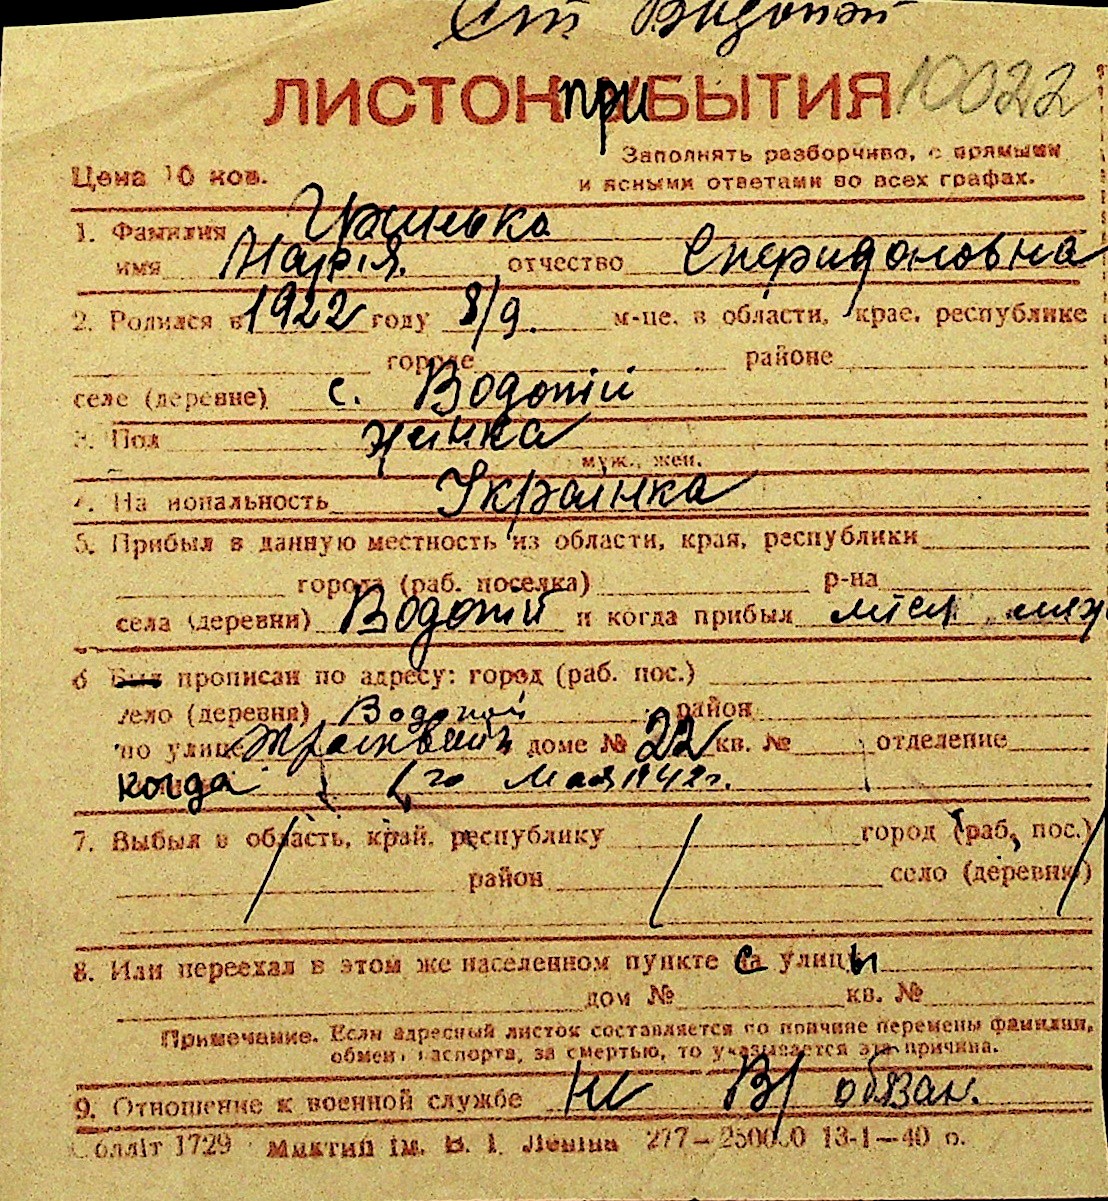 Водопій
ЛИСТОК ПРИБЫТИЯ 10022
Цена 10 коп.
Заполнять разборчиво, с прямыми
и ясными ответами во всех графах.
1. Фамилия
имя Марія отчество Спиридоновна
2. Родился в 1922 году 8/9. м-це, в области, крае, республике
городе районе
селе (деревне) с. Водопій
3. Пол жинка
муж., жен.
4. Национальность Украінка
5. Прибыл в данную местность из области, края, республики
города (раб. поселка) р-на
села (деревни) Водопій и когда прибыл міси
6 Был прописан по адресу: город (раб. пос.)
село (деревня) Водопой район
по улице доме № 22 кв. № отделение
когда го Мая 1942г.
7. Выбыл в область, край, республику город (раб. пос.)
район село (деревню)
8. Или переехал в этом же населенном пункте с улицы
дом № кв. №
Примечание. Если адресный листок составляется по причине перемены фамилии,
обмена паспорта, за смертью, то указывается эта причина.
9. Отношение к военной службе не В/обязан.
Обліт 1729 Миктип ім. В. І. Леніна 277—250000 13-1—40 р.